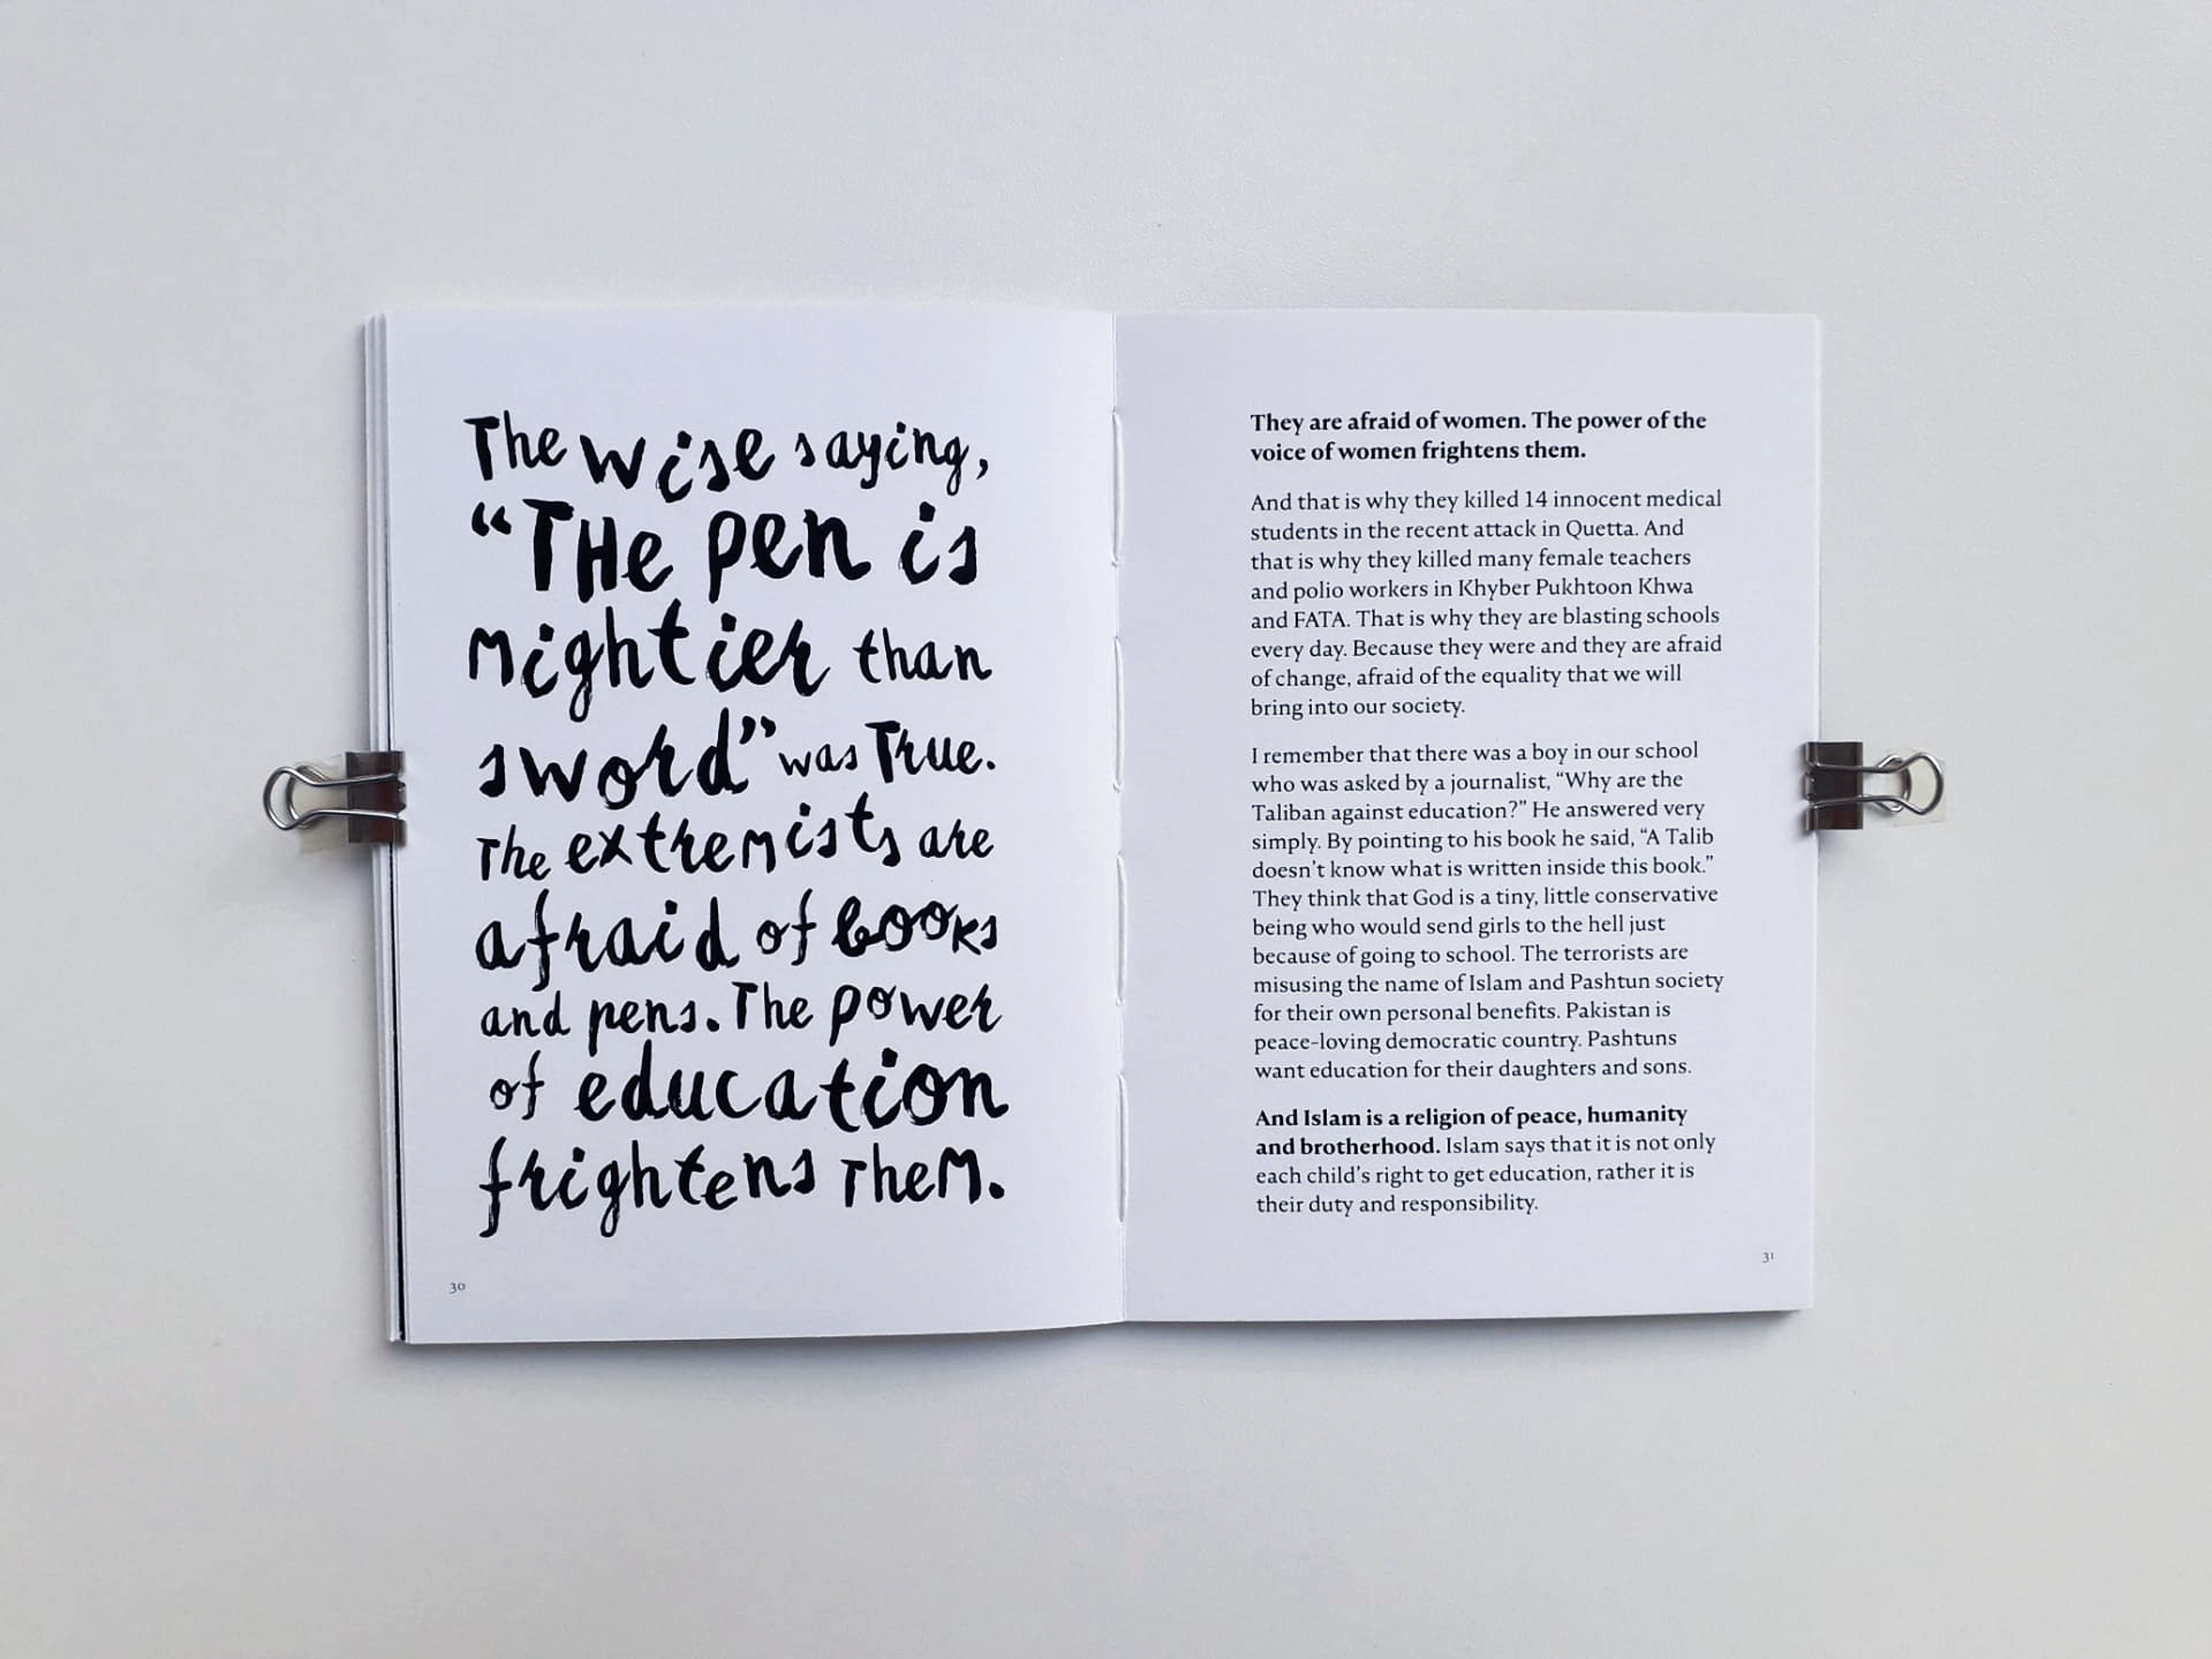 The wise saying,
“THe pen is
mightier than
sword” was True.
The extremists are
afraid of books
and pens. The power
of education
frightens Them.
30
They are afraid of women. The power of the
voice of women frightens them.
And that is why they killed 14 innocent medical
students in the recent attack in Quetta. And
that is why they killed many female teachers
and polio workers in Khyber Pukhtoon Khwa
and FATA. That is why they are blasting schools
every day. Because they were and they are afraid
of change, afraid of the equality that we will
bring into our society.
I remember that there was a boy in our school
who was asked by a journalist, “Why are the
Taliban against education?” He answered very
simply. By pointing to his book he said, “A Talib
doesn’t know what is written inside this book.”
They think that God is a tiny, little conservative
being who would send girls to the hell just
because of going to school. The terrorists are
misusing the name of Islam and Pashtun society
for their own personal benefits. Pakistan is
peace-loving democratic country. Pashtuns
want education for their daughters and sons.
And Islam is a religion of peace, humanity
and brotherhood. Islam says that it is not only
each child’s right to get education, rather it is
their duty and responsibility.
31